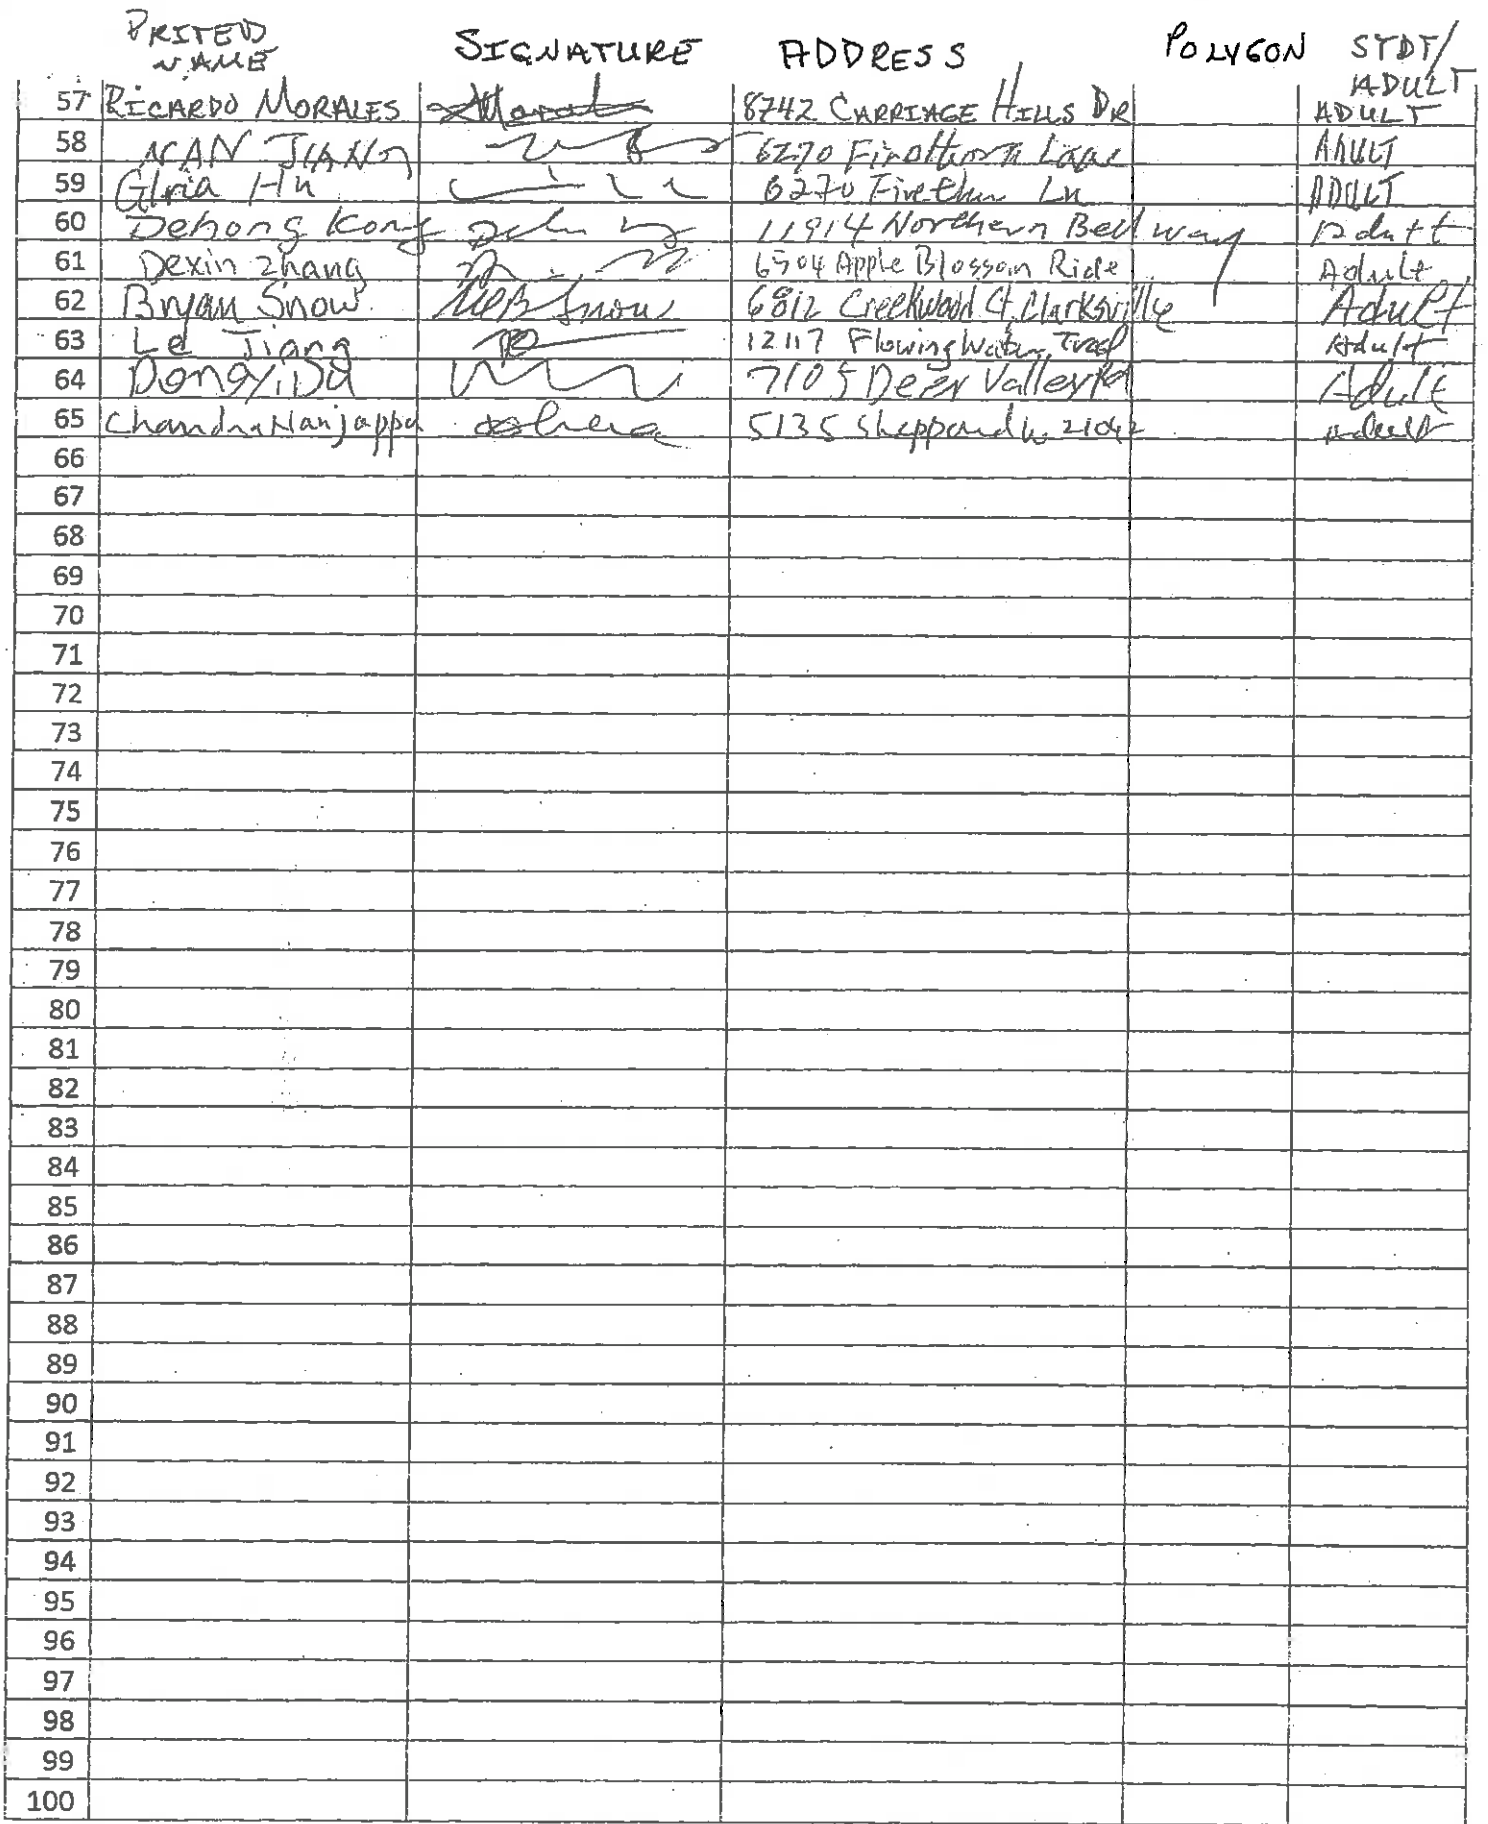 PRITED NAME SIGNATURE ADDRESS POLYGON STDT/ADULT
57 RICARDO MORALES 8742 CARRIAGE HILLS DR ADULT
58 NAN JIANG 6270 Firethorn Lane ADULT
59 Glria Hu 6270 Firethn Ln ADULT
60 Dehong Kong 11914 Northern Bell way Adult
61 Dexin Zhang 6504 Apple Blossom Ride Adult
62 Bryan Snow Snow 6812 Creekwood Ct. Clarksville Adult
63 Le Jiang 12117 Flowing Water Trail Adult
64 Dongyi Du 7105 Deer Valley Rd Adult
65 Chandra Nanjappa 5135 Sheppard Ln 21042 Adult
66
67
68
69
70
71
72
73
74
75
76
77
78
79
80
81
82
83
84
85
86
87
88
89
90
91
92
93
94
95
96
97
98
99
100